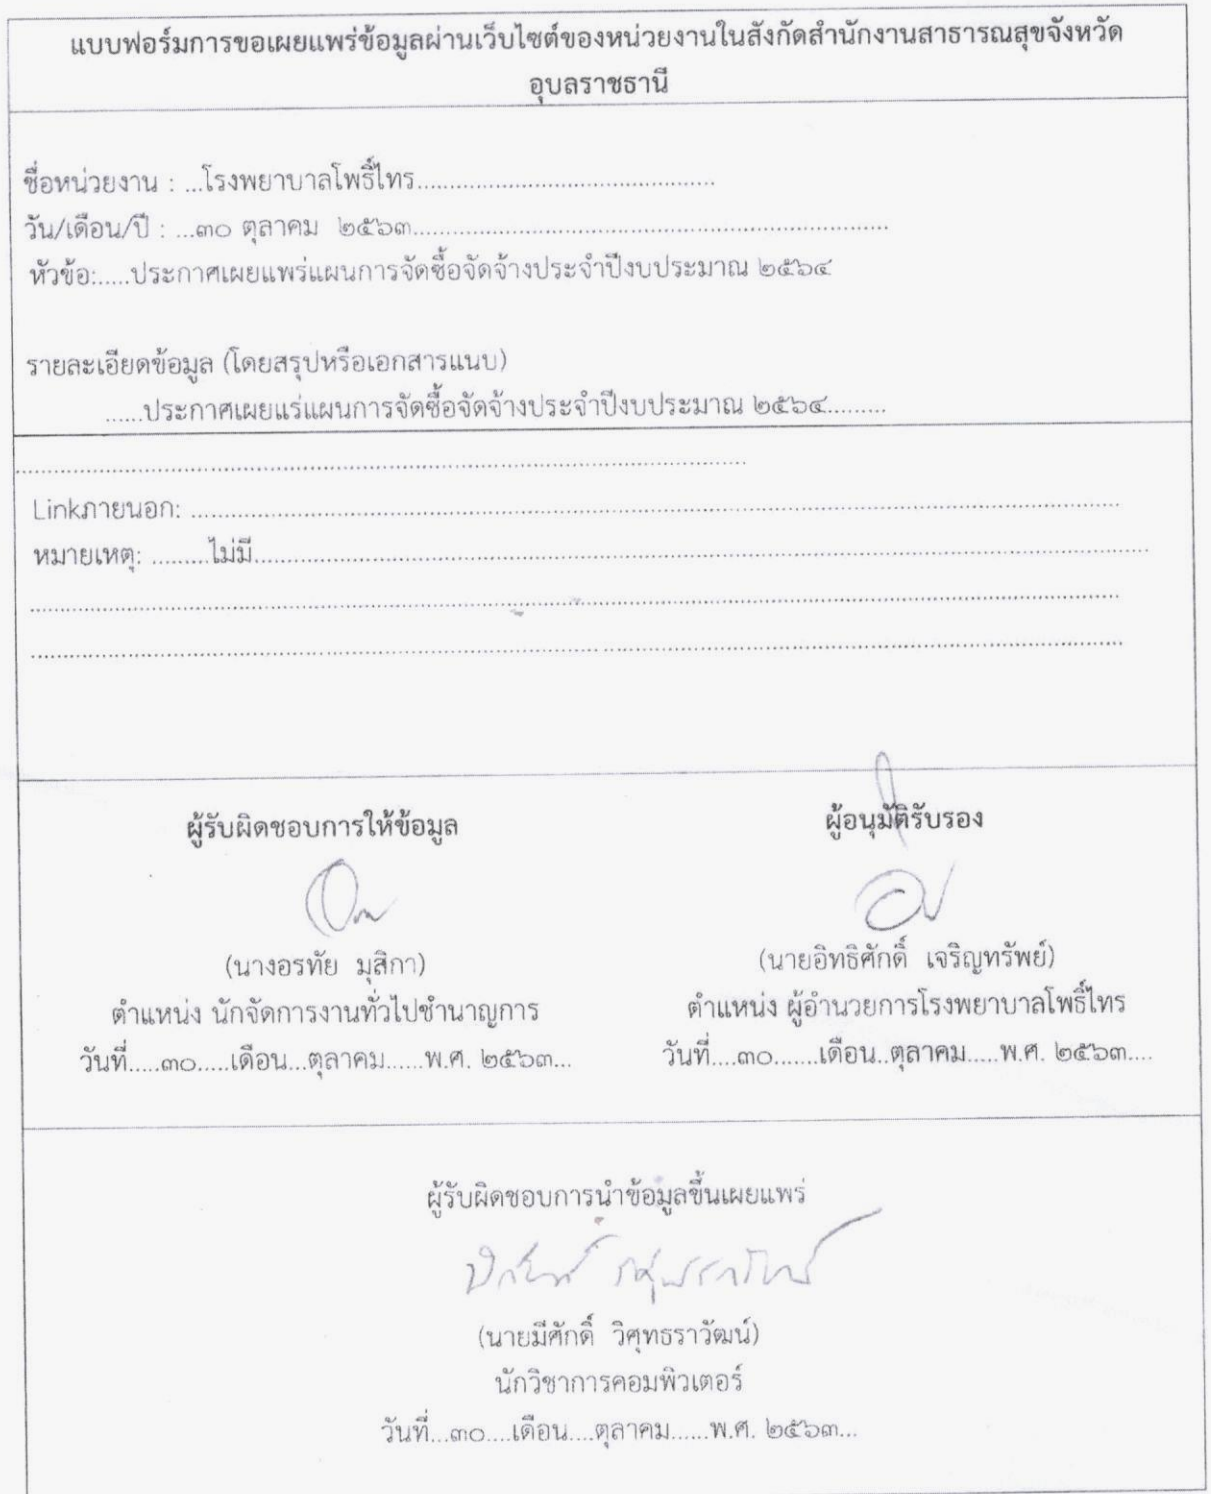 แบบฟอร์มการขอเผยแพร่ข้อมูลผ่านเว็บไซต์ของหน่วยงานในสังกัดสำนักงานสาธารณสุขจังหวัด
อุบลราชธานี
ชื่อหน่วยงาน : ...โรงพยาบาลโพธิ์ไทร..............................................
วัน/เดือน/ปี : ...๓๐ ตุลาคม ๒๕๖๓.........................................................................
หัวข้อ:.....ประกาศเผยแพร่แผนการจัดซื้อจัดจ้างประจำปีงบประมาณ ๒๕๖๔
รายละเอียดข้อมูล (โดยสรุปหรือเอกสารแนบ)
......ประกาศเผยแร่แผนการจัดซื้อจัดจ้างประจำปีงบประมาณ ๒๕๖๔.........
Linkภายนอก: ................................................................................
หมายเหตุ: .........ไม่มี................................................................................
ผู้รับผิดชอบการให้ข้อมูล
(นางอรทัย มุสิกา)
ตำแหน่ง นักจัดการงานทั่วไปชำนาญการ
วันที่.....๓๐.....เดือน...ตุลาคม......พ.ศ. ๒๕๖๓...
ผู้อนุมัติรับรอง
(นายอิทธิศักดิ์ เจริญทรัพย์)
ตำแหน่ง ผู้อำนวยการโรงพยาบาลโพธิ์ไทร
วันที่....๓๐.......เดือน..ตุลาคม.....พ.ศ. ๒๕๖๓....
ผู้รับผิดชอบการนำข้อมูลขึ้นเผยแพร่
(นายมีศักดิ์ วิศุทธราวัฒน์)
นักวิชาการคอมพิวเตอร์
วันที่...๓๐....เดือน....ตุลาคม......พ.ศ. ๒๕๖๓...